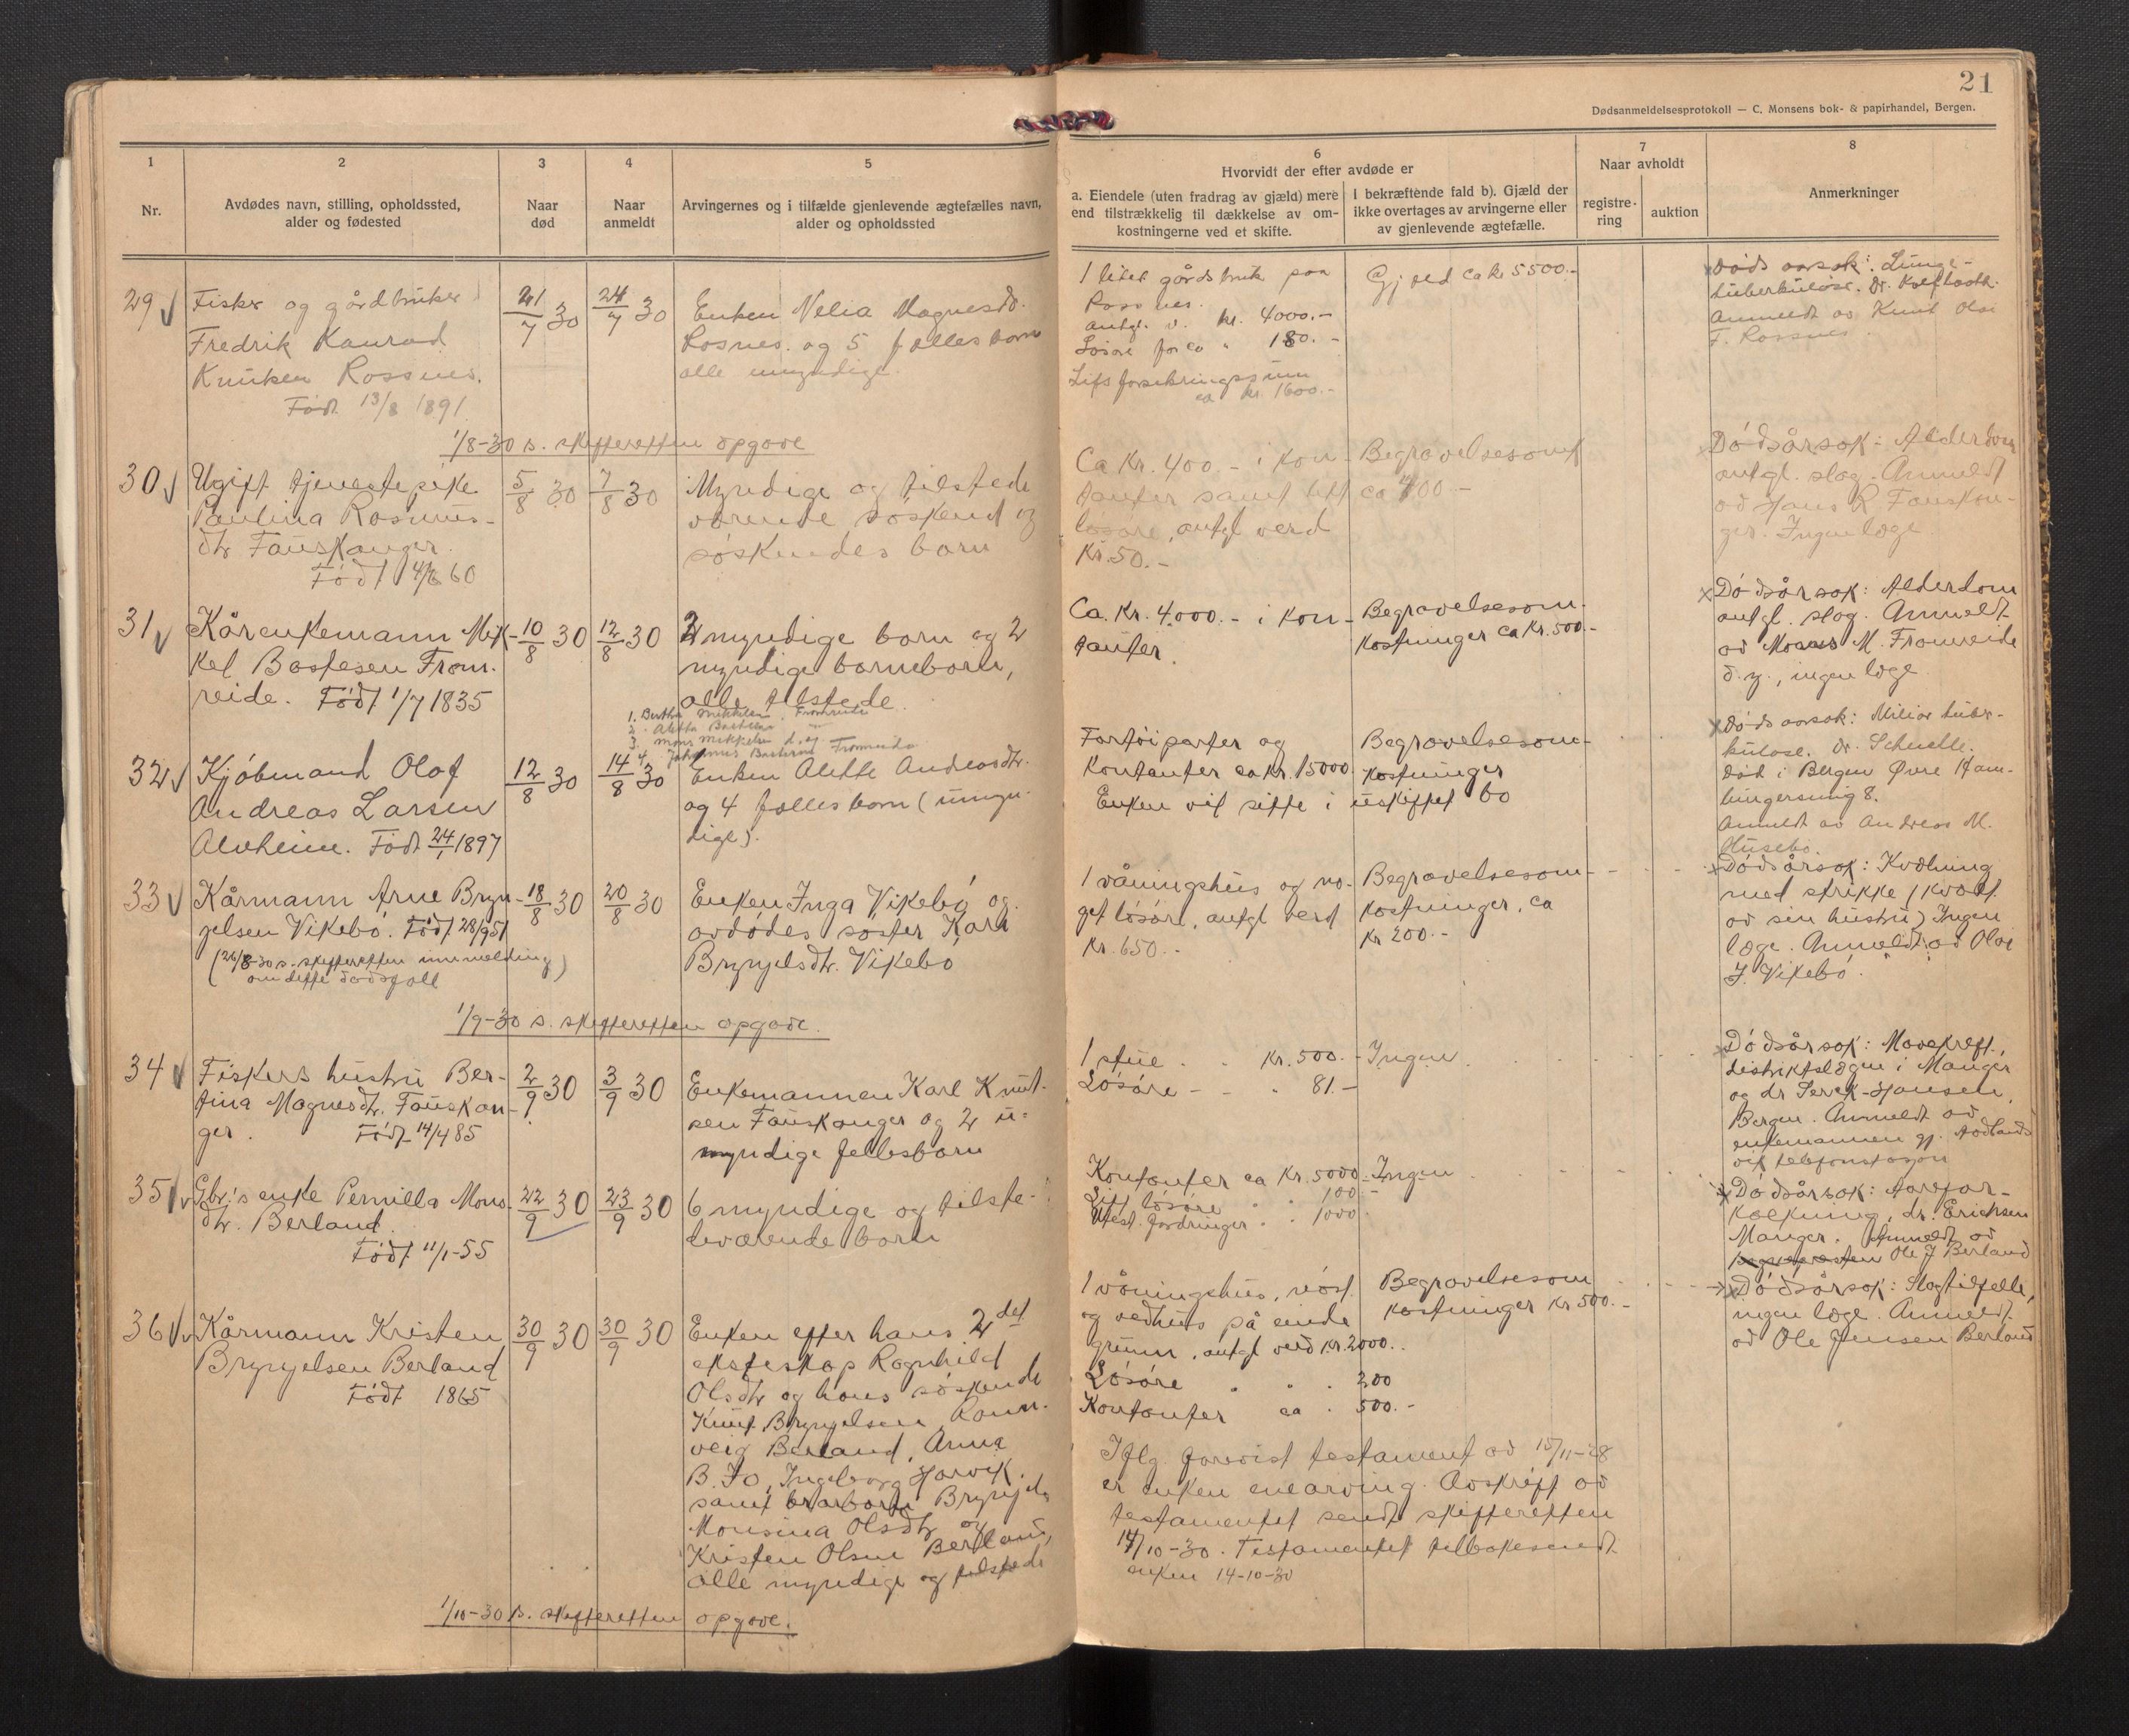 21
Dødsanmeldelsesprotokoll — C. Monsens bok- & papirhandel, Bergen.
1
2
3
4
5
6
7
8
Nr.
Avdødes navn, stilling, opholdssted,
alder og fødested
Naar
død
Naar
anmeldt
Arvingernes og i tilfælde gjenlevende ægtefælles navn,
alder og opholdssted
Hvorvidt der efter avdøde er
a. Eiendele (uten fradrag av gjæld) mere
end tilstrækkelig til dækkelse av om-
kostningerne ved et skifte.
I bekræftende fald b). Gjæld der
ikke overtages av arvingerne eller
av gjenlevende ægtefælle.
Naar avholdt
registre-
ring
auktion
Anmerkninger
29
Fisker og gårdbruker
Fredrik Konrad
Knutsen Rossnes.
Født 13/8 1891
21/7 30
24/7 30
Enken Nelia Magnesdtr.
Rosnes. og 5 fællesborn
alle umyndige.
1 litet gårdsbruk paa
Rossnes.
antgl. v. kr. 4000.-
Løsøre for ca " 180.-
Lifsforsikringssum
ca kr 1600.-
Gjæld ca kr 5500.-
Døds aarsak: Lunge-
tuberkulose. Dr.
Anmeldt av Knut Olsen
F. Rossnes
1/8-30 s. skifteretten opgave
30
Ugift tjenestepike
Paulina Rasmus-
dtr. Fauskanger.
Født 4/6 60
5/8 30
7/8 30
Myndige og tilstede
værende søskend og
søskendes born
Ca Kr. 400.- i kon-
tanter samt litt
løsøre, antgl verd
Kr. 50.-
Begravelsesomk
ca 400-
Dødsårsak: Alderdom
antgl. slag. Anmeldt
av Hans R. Fauskan-
ger. Ingen læge
31
Kårenkemann Mik-
kel Bastesen From-
reide. Født 1/7 1835
10/8 30
12/8 30
2 myndige born og 2
myndige barneborn,
alle tilstede.
1. Bertha Mikkelsen, Fromreide
2. Aletta Bastesen
3. Mons Mikkelsen d. y.
4. Johannes Bastesen Fromreide
Ca. Kr. 4.000.- i kon-
tanter.
Begravelsesom-
kostninger ca Kr. 500.-
Dødsårsak: Alderdom
antgl. slag. Anmeldt
av Mons M. Fromreide
d. y., ingen læge
32
Kjøbmand Olaf
Andreas Larsen
Alvheim. Født 24/1 1897
12/8 30
14/8 30
Enken Alette Andreasdtr.
og 4 fællesborn (umyn-
dige).
Fartøiparter og
Kontanter ca Kr. 15000
Enken vil sitte i uskiftet bo
Begravelsesom-
kostninger
Døds aarsak: Miliær tuber-
kulose. Dr.
død i Bergen Øvre Ham-
burgersmug 8.
Anmeldt av Andreas M.
Husebø.
33
Kårmann Arne Bryn-
gelsen Vikebø. Født 28/9 51
(26/8-30 s. skifteretten innmelding
om dette dødsfall)
18/8 30
20/8 30
Enken Inga Vikebø og
avdødes søster Kari
Bryngelsdtr. Vikebø
1 våningshus og no-
get løsøre, antgl verd
Kr. 650.-
Begravelsesom-
kostninger, ca
Kr 200.-
Dødsårsak: Kvælning
med strikke (kvalt
av sin hustru) Ingen
læge. Anmeldt av Olai
J. Vikebø.
1/9-30 s. skifteretten opgave.
34
Fiskers hustru Ber-
tina Magnesdtr. Fauskan-
ger. Født 14/4 85
2/9 30
3/9 30
Enkemannen Karl Knut-
sen Fauskanger og 2 u-
myndige fellesborn
1 stue " Kr. 500.-
Løsøre - " 81.-
Ingen
Dødsårsak: Mavekreft,
distriktslægen i Manger
og dr Serck-Hansen,
Bergen. Anmeldt av
enkemannen gj. Aadlands-
vik telefonstasjon
35
Gbr.'s enke Pernilla Mons-
dtr. Berland.
Født 11/1-55
22/9 30
23/9 30
6 myndige og tilste-
deværende born
Kontanter ca Kr. 5000.-
Litt løsøre " 100.-
Utest. fordringer " " 1000.
Ingen
Dødsårsak: Aarefor-
kalkning, dr. Erichsen
Manger. Anmeldt av
Ole J Berland
36
Kårmann Kristen
Bryngelsen Berland
Født 1865
30/9 30
30/9 30
Enken efter hans 2det
ekteskap Ragnhild
Olsdtr og hans søskende
Knut Bryngelsen, Rann-
veig Berland, Anna
B. Fo, Ingeborg Harvik
samt brorborn Bryngel
Monsina Olsdtr og
Kristen Olsen Berland,
alle myndige og tilstede
1 våningshus, nøst
og vedhus på eiende
grunn, antgl verd kr. 2000.
Løsøre " " 200
Kontanter ca " 500.-
Begravelsesom
kostninger Kr 500.-
Dødsårsak: Slagtilfelle,
ingen læge. Anmeldt
av Ole Jensen Berland
Iflg. forevist testament av 15/11-28
er enken enearving. Avskrift av
testamentet sendt skifteretten
14/10-30. Testamentet tilbakesendt
enken 14-10-30
1/10-30 s. skifteretten opgave.